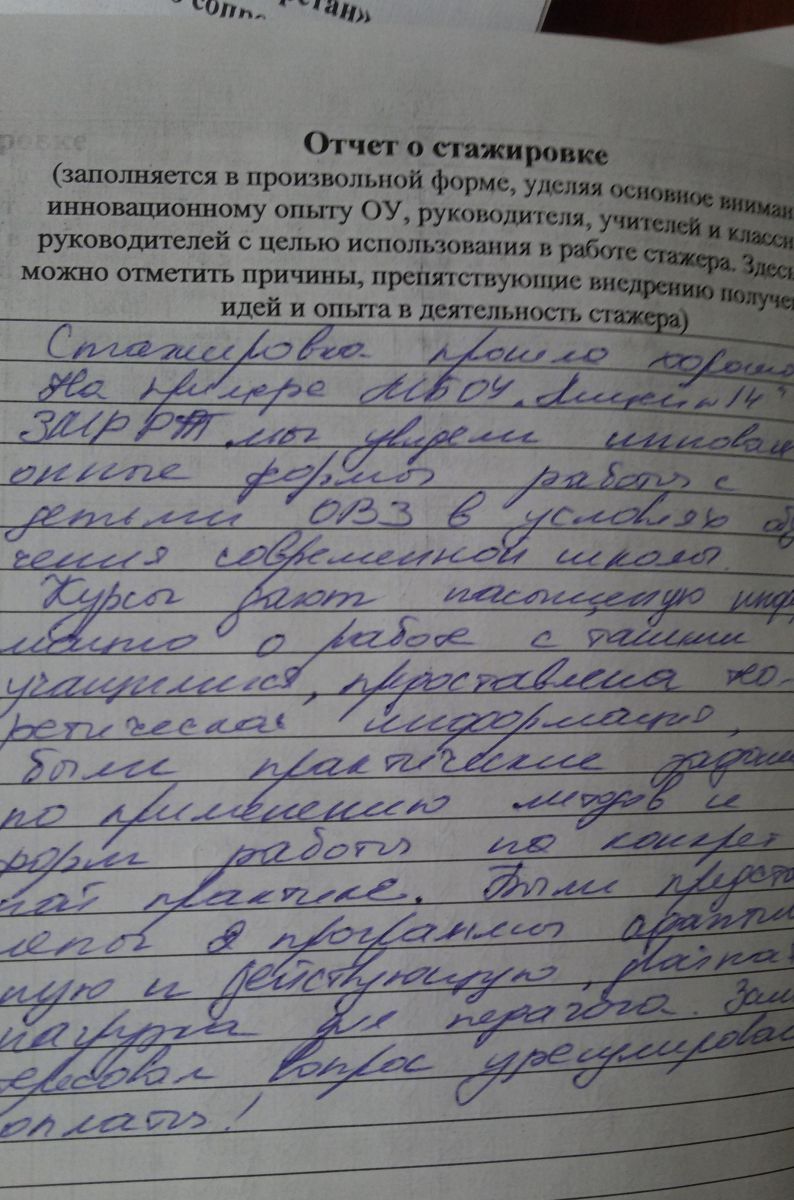 ретан»
о сопро
ровке
Отчет о стажировке
(заполняется в произвольной форме, уделяя основное вниман
инновационному опыту ОУ, руководителя, учителей и классн
руководителей с целью использования в работе стажера. Здесь
можно отметить причины, препятствующие внедрению получе
идей и опыта в деятельность стажера)
Стажировка прошла хорошо
На примере МБОУ „Лицей №14"
ЗМР РТ мы увидели инновац
онные формы работы с
детьми ОВЗ в условиях обу
чения современной школы.
Курсы дают насыщеную инфо
мацию о работе с такими
учащимися, предоставлена тео-
ретическая информация,
были практические задан
по применению методов и
форм работы по конкрет
ной практике. Были предста
лены 2 программы
ную и действующую,
нагрузка для педагога. Заин
тересовал вопрос урегулирован
оплаты!